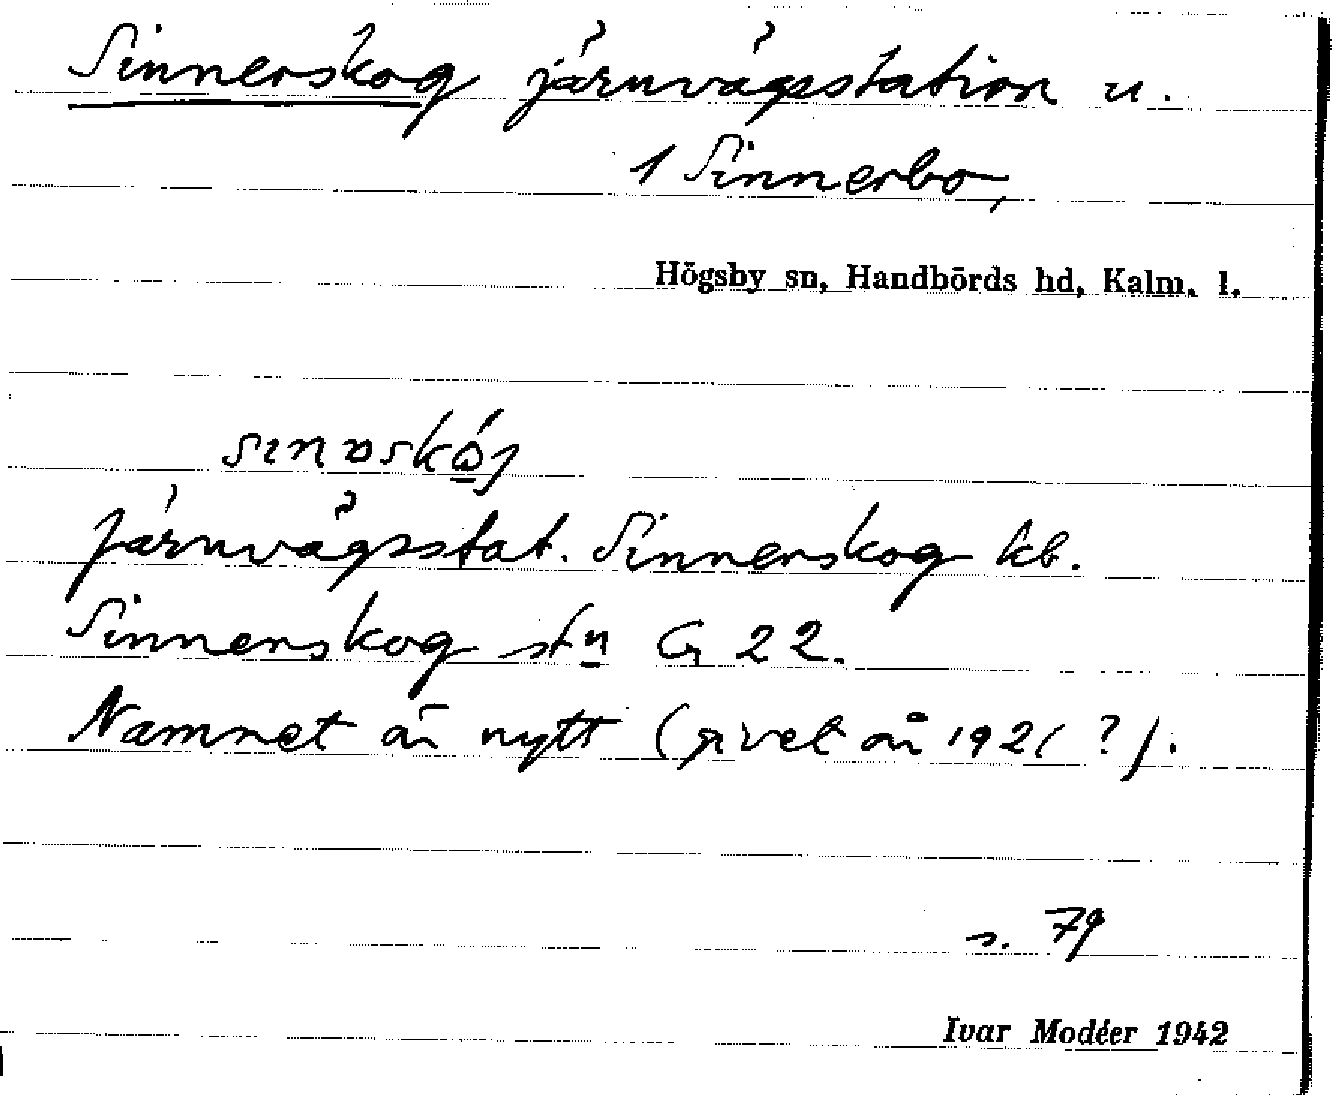 Sinnerskog järnvägsstation u.
1 Sinnerbo,
Högsby sn, Handbörds hd, Kalm. l.
Järnvägsstat. Sinnerskog kb.
Sinnerskog stn G 22.
Namnet är nytt (givet år 1921 ?).
s. 79
Ivar Modéer 1942